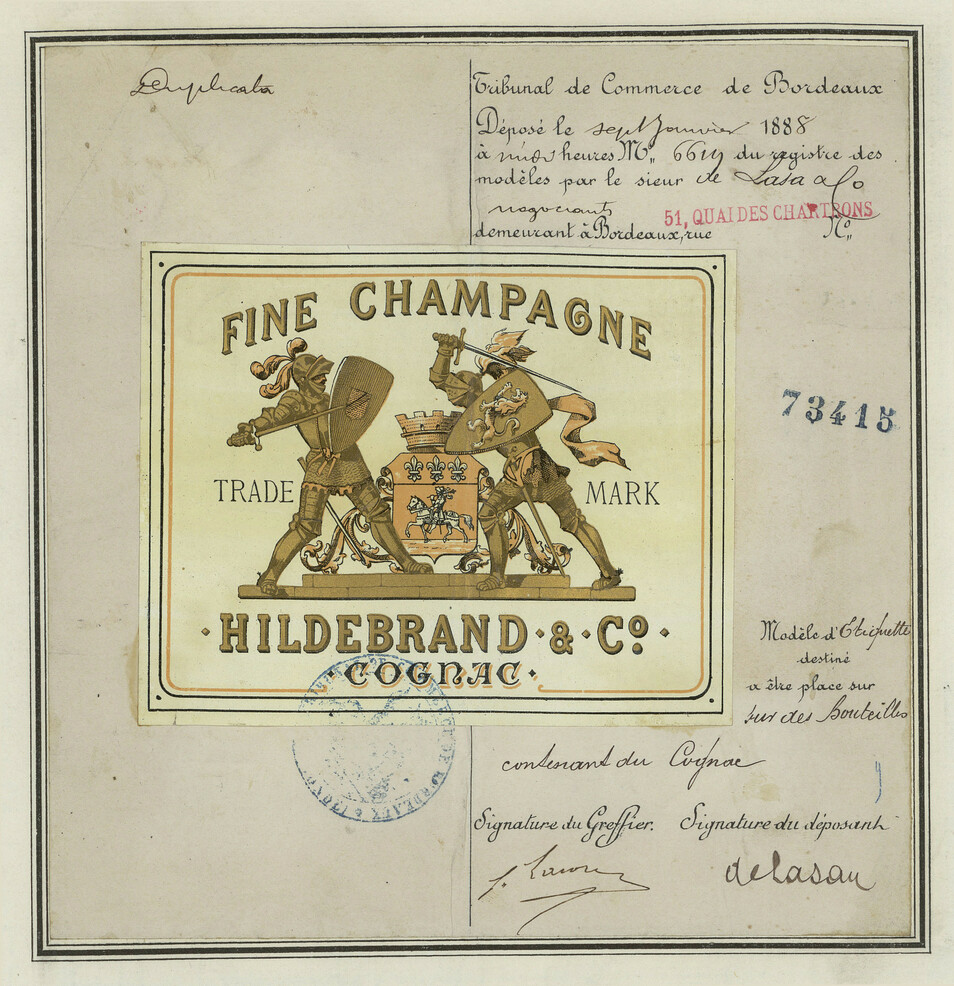 Duplicata
Tribunal de Commerce de Bordeaux
Déposé le sept Janvier 1888
à heures Nº du registre des
modèles par le sieur de Lasa & Co
negociants
51, QUAI DES CHARTRONS
demeurant à Bordeaux, rue Nº
FINE CHAMPAGNE
TRADE MARK
HILDEBRAND & Cº
COGNAC
73415
Modèle d'Etiquette
destiné
a être place sur
sur des Bouteilles
contenant du Cognac
Signature du Greffier. Signature du déposant
delasau